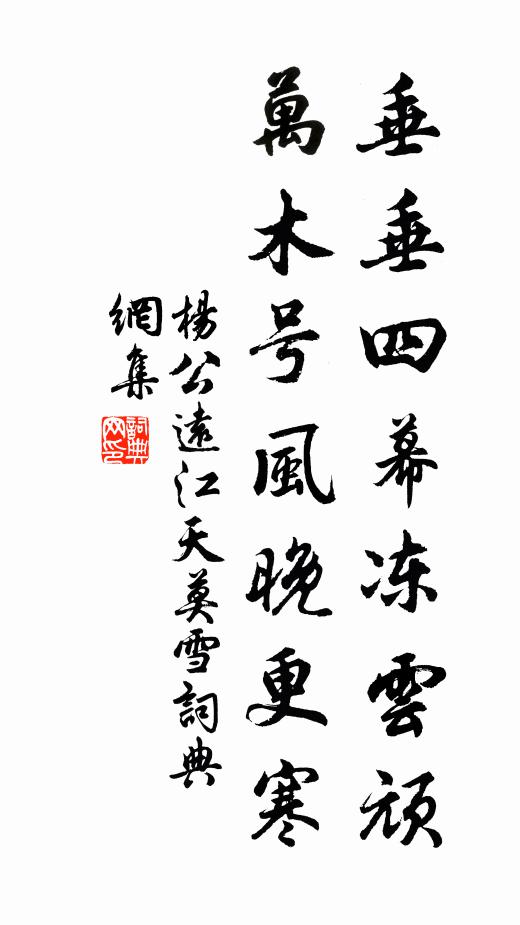 垂垂四幕冻雲頑
萬木号風晚更寒
楊公遠江天莫雪詞典
網集
詞典網印